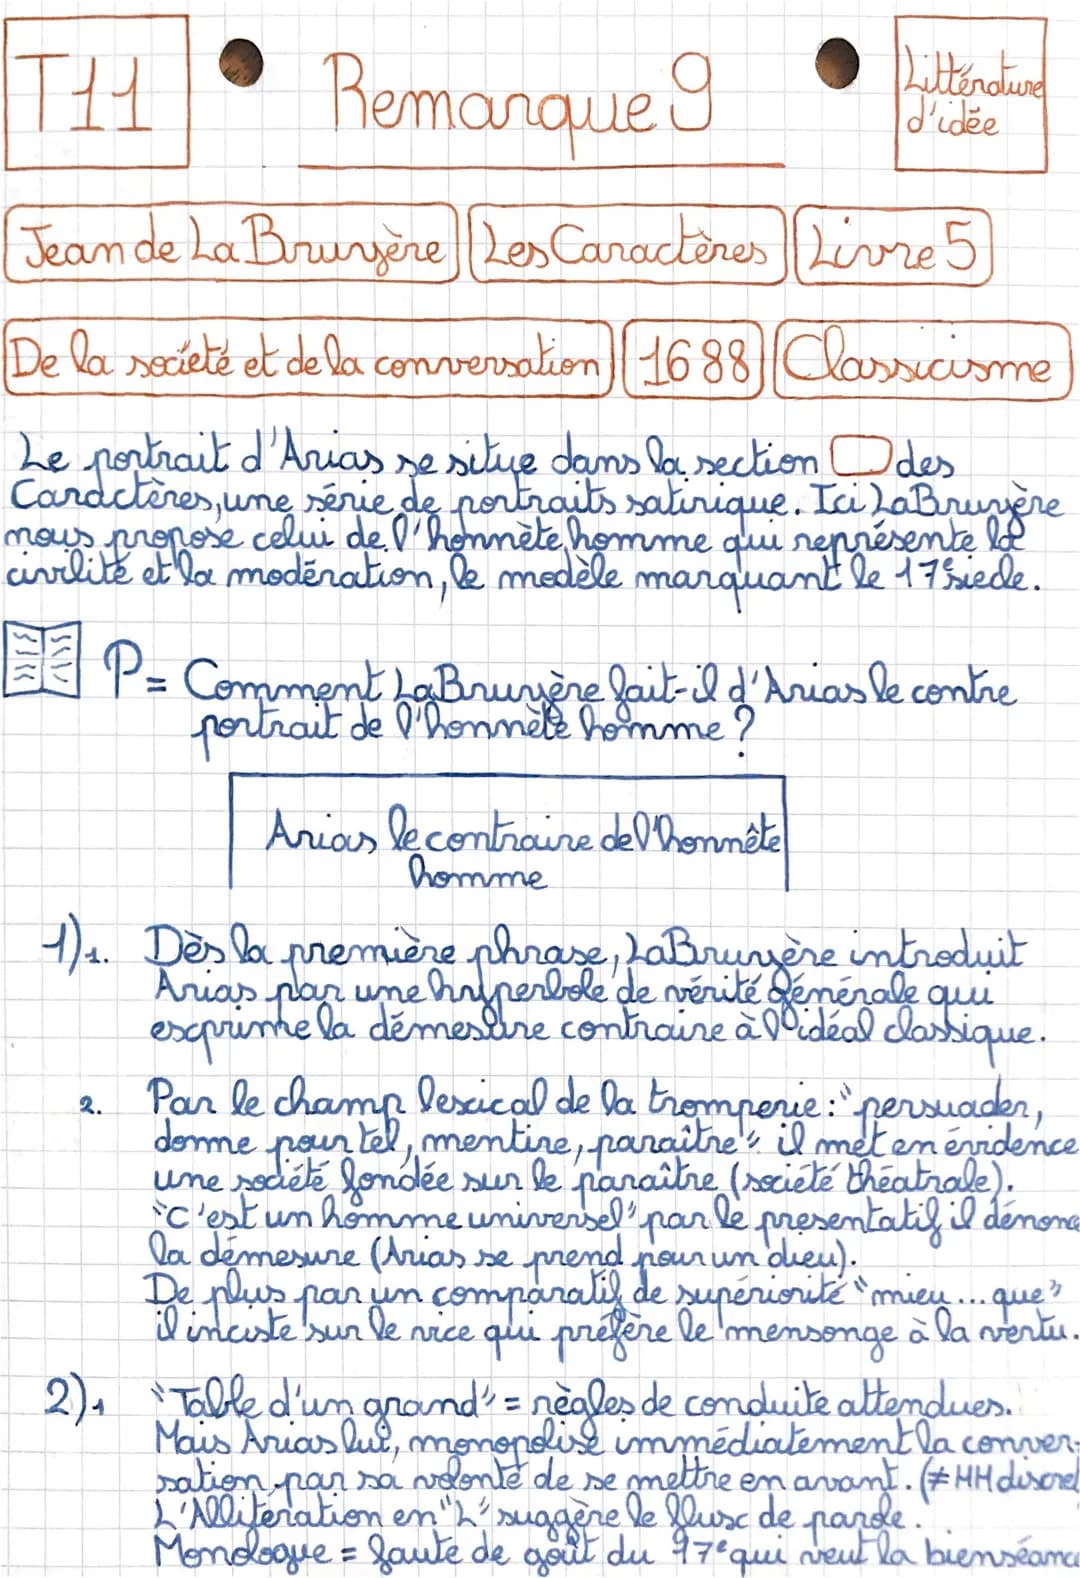 T11
Remarque 9
Littérature
d'idée
Jean de La Bruyère
Les Caractères
Livre 5
De la société et de la conversation
1688
Classicisme
Le portrait d'Arias se situe dans la section des
Caractères, une série de portraits satirique. Ici La Bruyère
nous propose celui de l'honnète homme qui représente la
civilité et la modération, le modèle marquant le 17e siecle.
P = Comment La Bruyère fait-il d'Arias le contre
portrait de l'honnète homme ?
Arias le contraire de l'honnête
homme
1) 1. Dès la première phrase, La Bruyère introduit
Arias par une hyperbole de vérité générale qui
exprime la démesure contraire à l'idéal classique.
2. Par le champ lexical de la tromperie : "persuader,
donne pour tel, mentire, paraître" il met en évidence
une société fondée sur le paraître (société théatrale).
"C'est un homme universel" par le presentatif il dénonc
la démesure (Arias se prend pour un dieu).
De plus par un comparatif de supériorité "mieu ... que"
il inciste sur le vice qui préfère le mensonge à la vertu.
2) 1 "Table d'un grand" = règles de conduite attendues.
Mais Arias lui, monopolise immédiatement la conver-
sation par sa volonté de se mettre en avant. (≠ HH discret
L'Allitération en "L" suggère le flux de parole.
Monologue = faute de goût du 17e qui veut la bienséanc